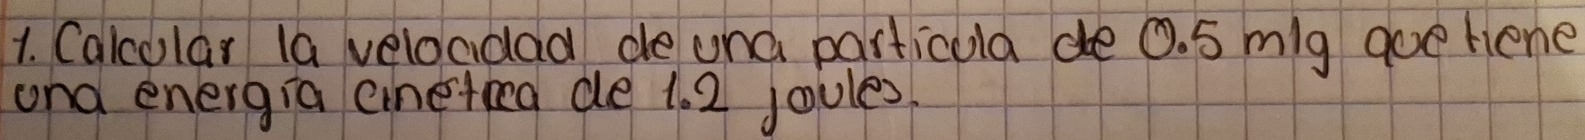 1. Calcular la velocidad de una particula de 0.5 mlg que tiene
una energía cinética de 1.2 joules.